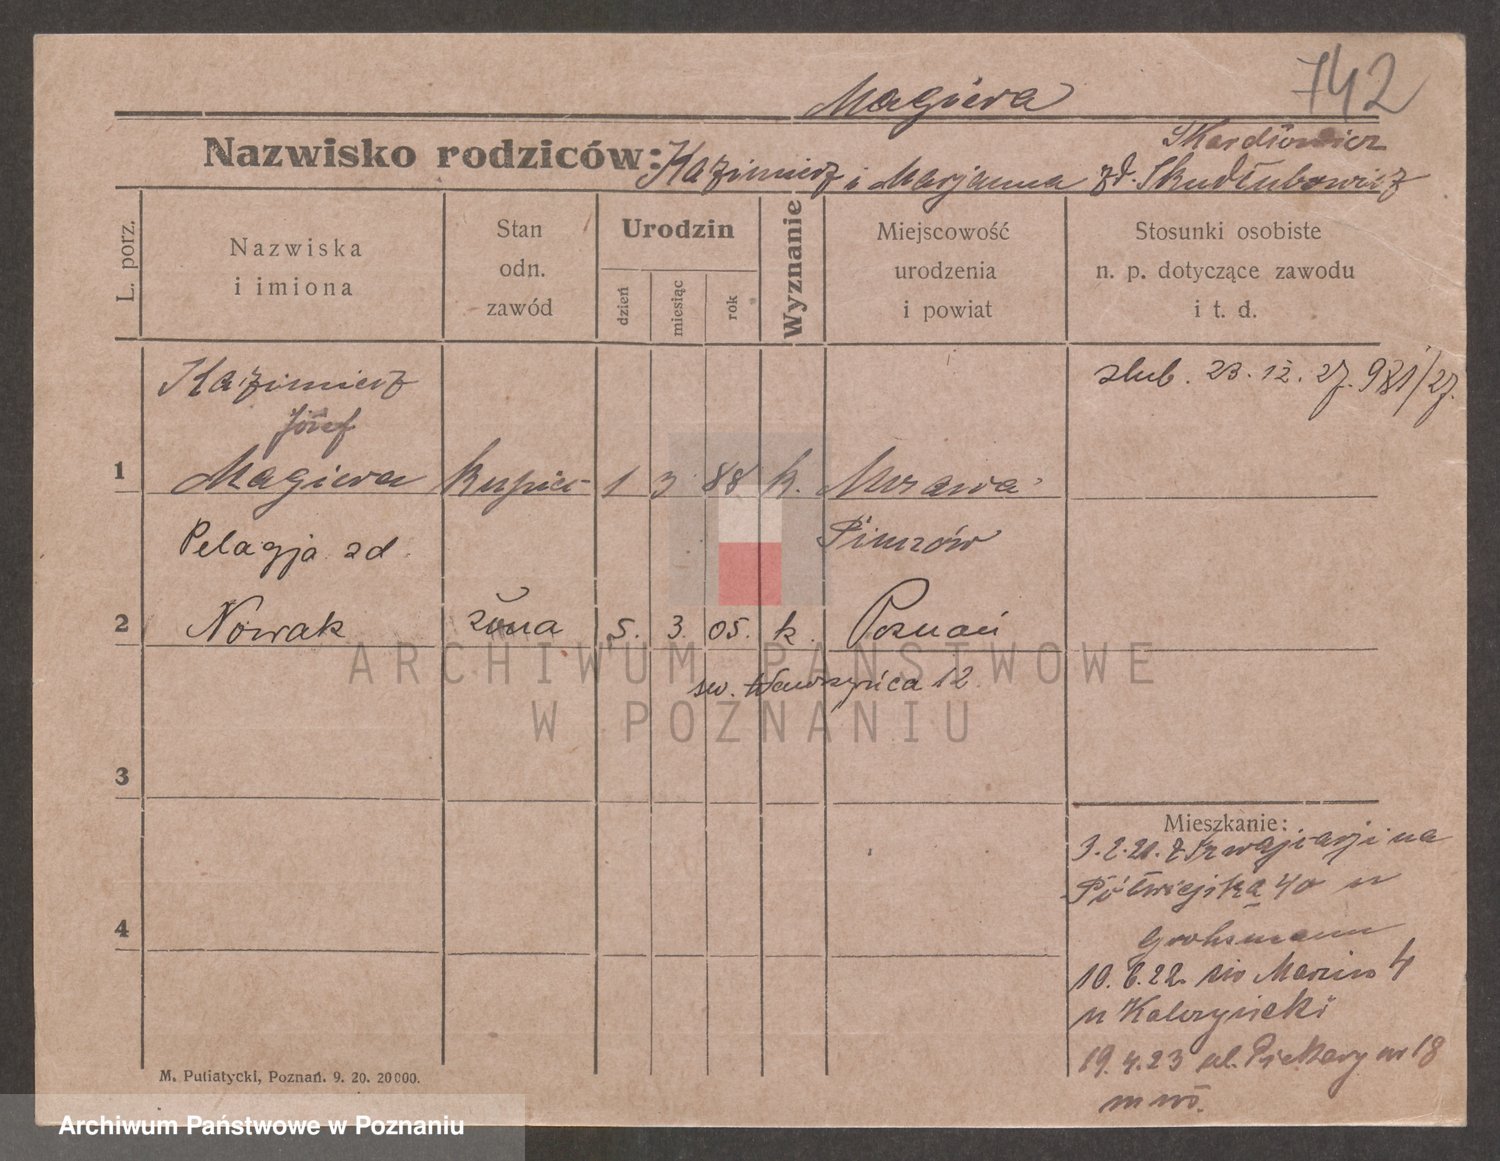 742
Magiera
Skardłowicz
Nazwisko rodziców: Kazimierz i Marjanna zd. Skudłubowicz
L. porz.
Nazwiska
i imiona
Stan
odn.
zawód
Urodzin
dzień
miesiąc
rok
Wyznanie
Miejscowość
urodzenia
i powiat
Stosunki osobiste
n. p. dotyczące zawodu
i t. d.
Kazimierz
Józef
1 Magiera kupiec 1 3 88 k.
Pińczów
ślub. 23. 12. 27. 981/27.
Pelagja zd
2 Nowak żona 5. 3. 05. k. Poznań
św. Wawrzyńca 12
3
4
Mieszkanie:
3.2.21. z Szwajcarji na
Półwiejską 40 u
Grohsmann
10. 6. 22. 4
u
19. 4. 23 ul. Piekary nr 18
M. Putiatycki, Poznań. 9. 20. 20000.
ARCHIWUM PAŃSTWOWE
W POZNANIU
Archiwum Państwowe w Poznaniu